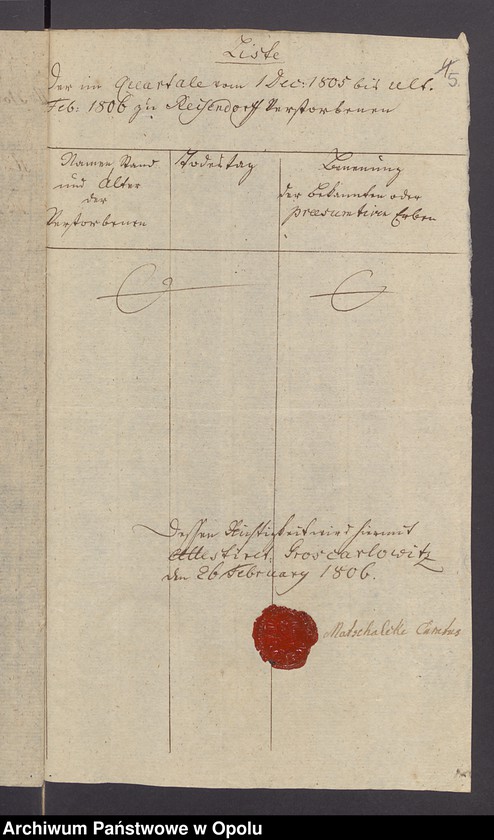 Liste
4
5.
der im Quartale vom 1 Dec: 1805 bis ult.
Feb: 1806 zu Reisendorff Verstorbenen
Namen Stand
und Alter
der
Verstorbenen
Todestag
Benennung
der bekannten oder
præsumtiven Erben
Dessen Richtigkeit wird hiermit
Attestiret. Groscarlowitz
den 26 February 1806.
Matschalcke
Archiwum Państwowe w Opolu